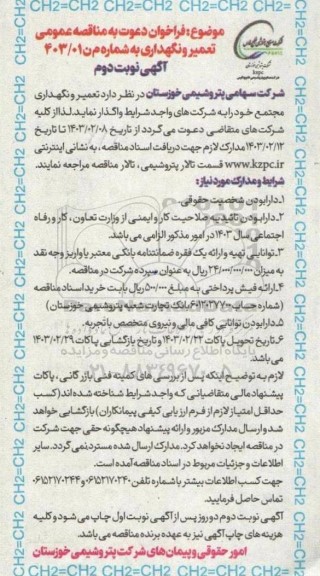 موضوع: فراخوان دعوت به مناقصه عمومی
تعمیر و نگهداری به شماره م ن ۴۰۳/۰۱
آگهی نوبت دوم
kzpc
شرکت سهامی پتروشیمی خوزستان در نظر دارد تعمیر و نگهداری
مجتمع خود را به شرکت های واجد شرایط واگذار نماید. لذا از کلیه
شرکت های متقاضی دعوت می گردد از تاریخ ۱۴۰۳/۰۲/۰۸ تا تاریخ
۱۴۰۳/۰۲/۱۲ مدارک لازم جهت دریافت اسناد مناقصه، به نشانی اینترنتی
www.kzpc.ir قسمت تالار پتروشیمی، تالار مناقصه مراجعه نمایند.
شرایط و مدارک مورد نیاز:
۱.دارا بودن شخصیت حقوقی
۲.دارا بودن تائیدیه صلاحیت کار و ایمنی از وزارت تعاون، کار و رفاه
اجتماعی سال ۱۴۰۳ در امور مذکور الزامی می باشد.
۳.توانایی تهیه و ارائه یک فقره ضمانتنامه بانکی معتبر یا واریز وجه نقد
به میزان ۲۴/۰۰۰/۰۰۰/۰۰۰ ریال به عنوان سپرده شرکت در مناقصه.
۴.ارائه فیش پرداختی به مبلغ ۵۰۰/۰۰۰ ریال بابت خرید اسناد مناقصه
(شماره حساب ۶۰۱۲۰۳۷۷۰۰ بانک تجارت شعبه پتروشیمی خوزستان)
۵.دارا بودن توانایی کافی مالی و نیروی متخصص با تجربه.
۶.تاریخ تحویل پاکات ۱۴۰۳/۰۲/۲۲ و تاریخ بازگشایی پاکات ۱۴۰۳/۰۲/۲۹
می باشد.
لازم به توضیح اینکه پس از بررسی های کمیته فنی بازرگانی، پاکات
پیشنهاد مالی متقاضیانی که واجد شرایط شناخته شده اند (کسب
حداقل امتیاز لازم از فرم ارزیابی کیفی پیمانکاران) بازگشایی خواهد
شد و ارسال مدارک مزبور و ارائه پیشنهاد هیچگونه حقی جهت شرکت
در مناقصه ایجاد نخواهد کرد. مدارک ارسال شده مسترد نمی گردد. سایر
اطلاعات و جزئیات مربوط در اسناد مناقصه آمده است.
جهت کسب اطلاعات بیشتر با شماره تلفن ۰۶۱۵۲۱۷۰۲۴۰ و ۰۶۱۵۲۱۷۰۲۴۴
تماس حاصل فرمایید.
آگهی نوبت دوم دو روز پس از آگهی نوبت اول چاپ می شود و کلیه
هزینه های چاپ آگهی نیز به عهده برنده مناقصه می باشد.
امور حقوقی و پیمان های شرکت پتروشیمی خوزستان